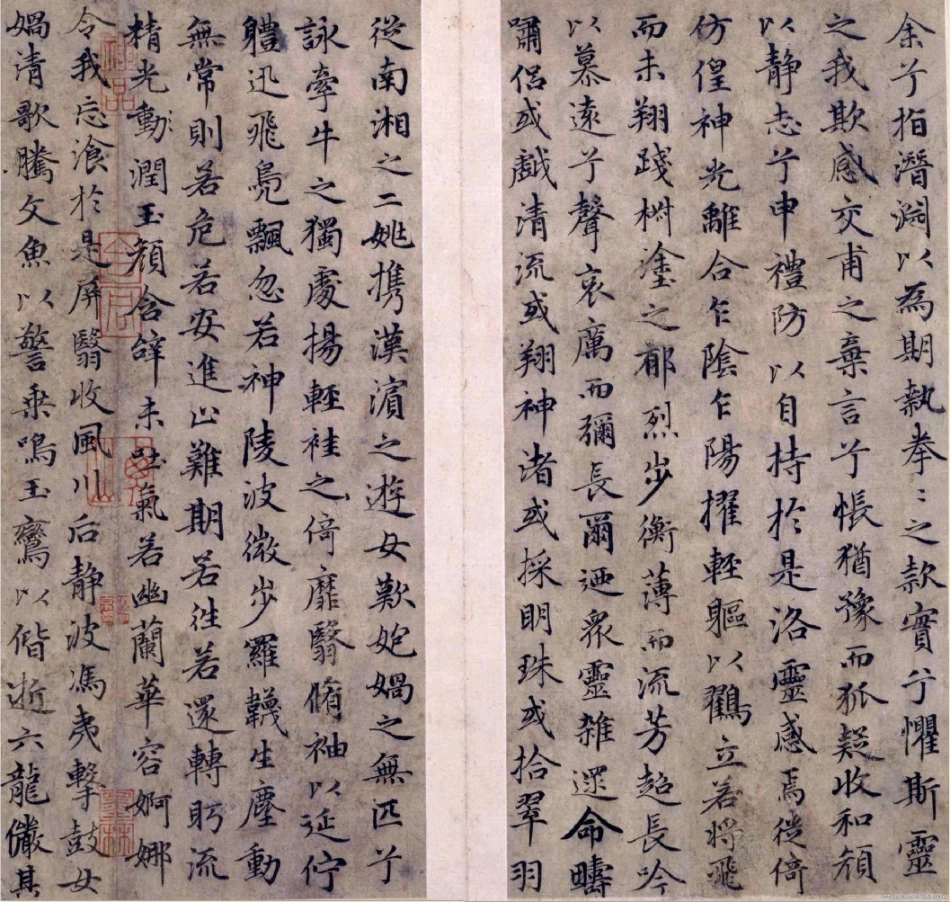 余兮指潛淵以為期執拳〻之款實兮懼斯靈
之我欺感交甫之棄言兮悵猶豫而狐疑收和顏
以靜志兮申禮防以自持於是洛靈感焉徙倚
仿偟神光離合乍陰乍陽擢輕軀以鶴立若將飛
而未翔踐椒塗之郁烈步衡薄而流芳超長吟
以慕遠兮聲哀厲而彌長爾迺衆靈雜遝命疇
嘯侶或戲清流或翔神渚或採明珠或拾翠羽
從南湘之二姚携漢濱之遊女歎妑媧之無匹兮
詠牽牛之獨處揚輕袿之倚靡翳脩袖以延佇
軆迅飛鳧飄忽若神陵波微步羅韈生塵動
無常則若危若安進止難期若往若還轉眄流
精光動潤玉顏含辞未吐氣若幽蘭華容婀娜
令我忘飡於是屏翳收風川后静波馮夷擊鼓女
媧清歌騰文魚以警乘鳴玉鸞以偕逝六龍儼其